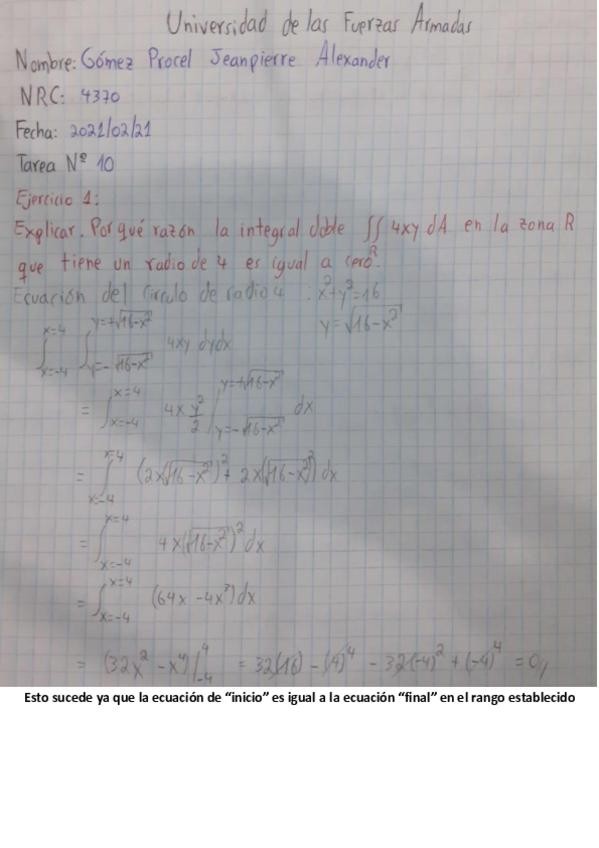 Universidad de las Fuerzas Armadas
Nombre: Gómez Procel Jeanpierre Alexander
NRC: 4370
Fecha: 2021/02/21
Tarea Nº 10
Ejercicio 1:
Explicar. Por qué razón la integral doble ∬_R 4xy dA en la zona R
que tiene un radio de 4 es igual a cero.
Ecuación del Circulo de radio 4 : x²+y²=16
y=√16-x²
∫_{x=-4}^{x=4} ∫_{y=-√16-x²}^{y=+√16-x²} 4xy dydx
= ∫_{x=-4}^{x=4} 4x y²/2 |_{y=-√16-x²}^{y=+√16-x²} dx
= ∫_{x=-4}^{x=4} (2x(√16-x²)²+ 2x(√16-x²)²) dx
= ∫_{x=-4}^{x=4} 4x(√16-x²)² dx
= ∫_{x=-4}^{x=4} (64x -4x³) dx
= (32x² -x⁴)|_{-4}^{4} = 32(16) -(4)⁴ - 32(-4)² +(-4)⁴ = 0//
Esto sucede ya que la ecuación de “inicio” es igual a la ecuación “final” en el rango establecido